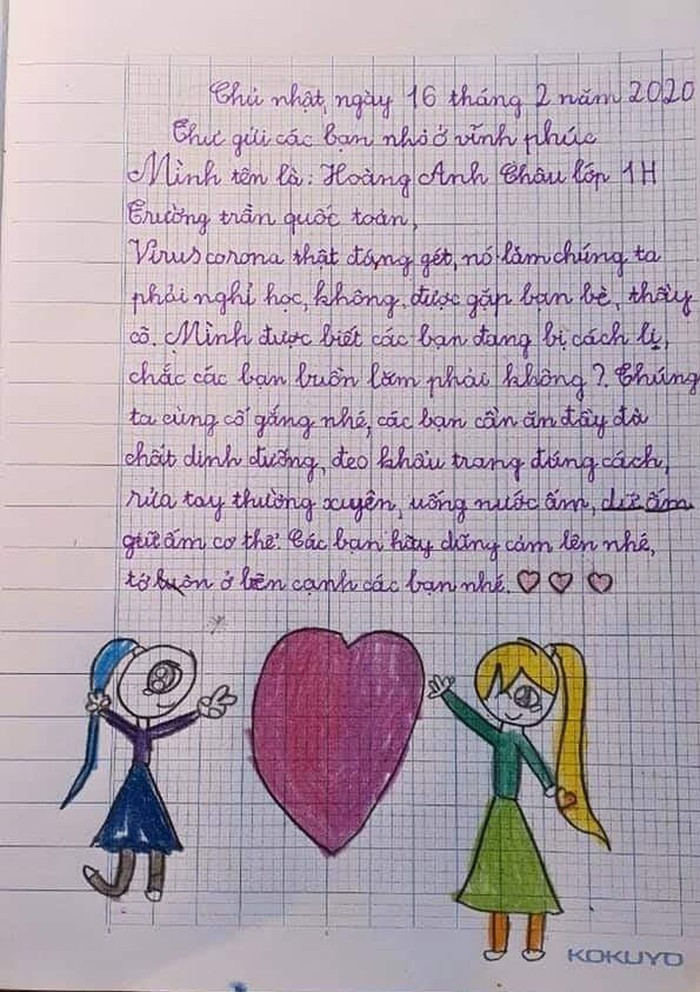 Chủ nhật, ngày 16 tháng 2 năm 2020
Thư gửi các bạn nhỏ ở vĩnh phúc
Mình tên là: Hoàng Anh Châu lớp 1H
Trường trần quốc toản,
Virus corona thật đáng gét, nó làm chúng ta
phải nghỉ học, không, được gặp bạn bè, thầy
cô. Mình được biết các bạn đang bị cách li,
chắc các bạn buồn lắm phải không? Chúng
ta cùng cố gắng nhé, các bạn cần ăn đầy đủ
chất dinh dưỡng, đeo khẩu trang đúng cách,
rửa tay thường xuyên, uống nước ấm, dữ ấm
giữ ấm cơ thể. Các bạn hãy dũng cảm lên nhé,
tớ luôn ở bên cạnh các bạn nhé.
KOKUYO